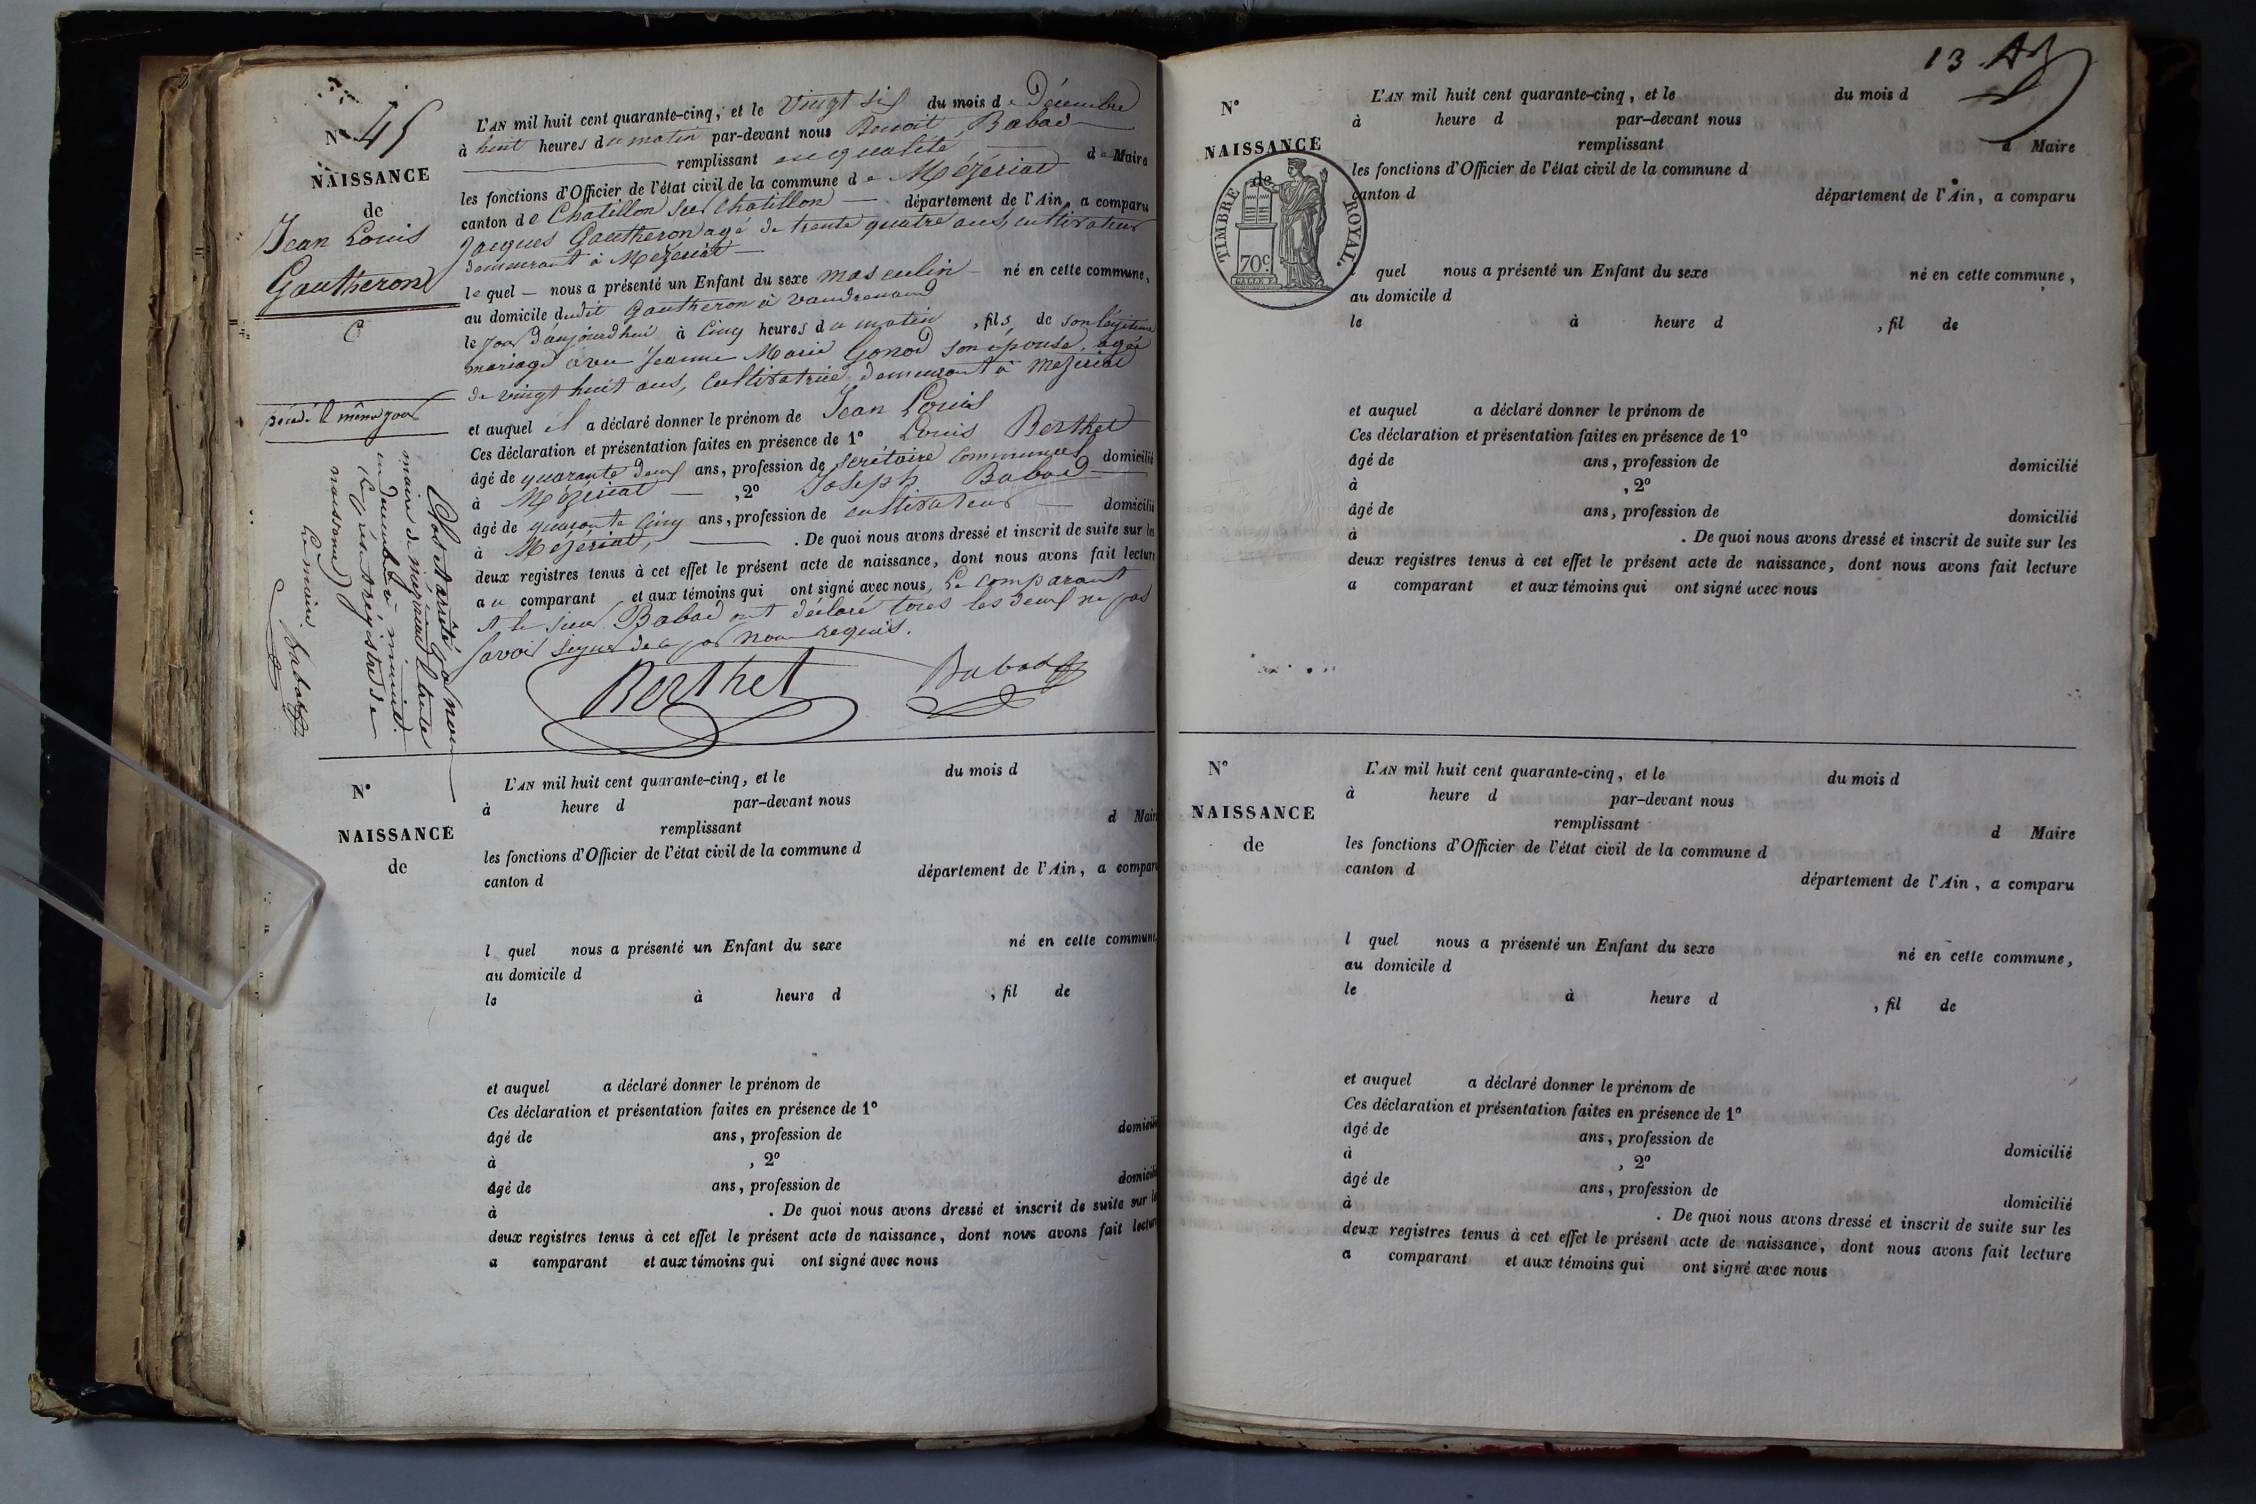 N° 45
NAISSANCE
de
Jean Louis
Gautheron
décédé le même jour
L'AN mil huit cent quarante-cinq, et le vingt six du mois de Décembre
à huit heures du matin par-devant nous Benoit Babad
remplissant en qualité de Maire
les fonctions d'Officier de l'état civil de la commune de Mézériat
canton de Chatillon sur Chatillon département de l'Ain, a comparu
Jacques Gautheron agé de trente quatre ans, cultivateur
demeurant à Mézériat
lequel nous a présenté un Enfant du sexe masculin né en cette commune,
au domicile dudit Gautheron à
le jour d'aujourd'hui à cinq heures du matin, fils de son légitime
mariage avec Jeanne Marie Gonod son épouse, agée
de vingt huit ans, cultivatrice, demeurant à Mézériat
et auquel il a déclaré donner le prénom de Jean Louis
Ces déclaration et présentation faites en présence de 1° Louis Berthet
âgé de quarante deux ans, profession de secrétaire communal domicilié
à Mézériat , 2° Joseph Babad
âgé de quarante cinq ans, profession de cultivateur domicilié
à Mézériat, . De quoi nous avons dressé et inscrit de suite sur les
deux registres tenus à cet effet le présent acte de naissance, dont nous avons fait lecture
au comparant et aux témoins qui ont signé avec nous, Le comparant
et le sieur Babad ont déclaré tous les deux ne pas
savoir signer de ce par nous requis.
Berthet
Babad
Clos et arrêté par nous
maire de Mézériat le trente
un décembre à minuit.
le présent régistre de
naissance
Le maire
Babad
N°
NAISSANCE
de
L'AN mil huit cent quarante-cinq, et le du mois d
à heure d par-devant nous
remplissant d Maire
les fonctions d'Officier de l'état civil de la commune d
canton d département de l'Ain, a comparu
l quel nous a présenté un Enfant du sexe né en cette commune,
au domicile d
le à heure d , fil de
et auquel a déclaré donner le prénom de
Ces déclaration et présentation faites en présence de 1°
âgé de ans, profession de domicilié
à , 2°
âgé de ans, profession de domicilié
à . De quoi nous avons dressé et inscrit de suite sur les
deux registres tenus à cet effet le présent acte de naissance, dont nous avons fait lecture
a comparant et aux témoins qui ont signé avec nous
13
N°
NAISSANCE
de
TIMBRE ROYAL.
70c
L'AN mil huit cent quarante-cinq, et le du mois d
à heure d par-devant nous
remplissant d Maire
les fonctions d'Officier de l'état civil de la commune d
canton d département de l'Ain, a comparu
l quel nous a présenté un Enfant du sexe né en cette commune,
au domicile d
le à heure d , fil de
et auquel a déclaré donner le prénom de
Ces déclaration et présentation faites en présence de 1°
âgé de ans, profession de domicilié
à , 2°
âgé de ans, profession de domicilié
à . De quoi nous avons dressé et inscrit de suite sur les
deux registres tenus à cet effet le présent acte de naissance, dont nous avons fait lecture
a comparant et aux témoins qui ont signé avec nous
N°
NAISSANCE
de
L'AN mil huit cent quarante-cinq, et le du mois d
à heure d par-devant nous
remplissant d Maire
les fonctions d'Officier de l'état civil de la commune d
canton d département de l'Ain, a comparu
l quel nous a présenté un Enfant du sexe né en cette commune,
au domicile d
le à heure d , fil de
et auquel a déclaré donner le prénom de
Ces déclaration et présentation faites en présence de 1°
âgé de ans, profession de domicilié
à , 2°
âgé de ans, profession de domicilié
à . De quoi nous avons dressé et inscrit de suite sur les
deux registres tenus à cet effet le présent acte de naissance, dont nous avons fait lecture
a comparant et aux témoins qui ont signé avec nous